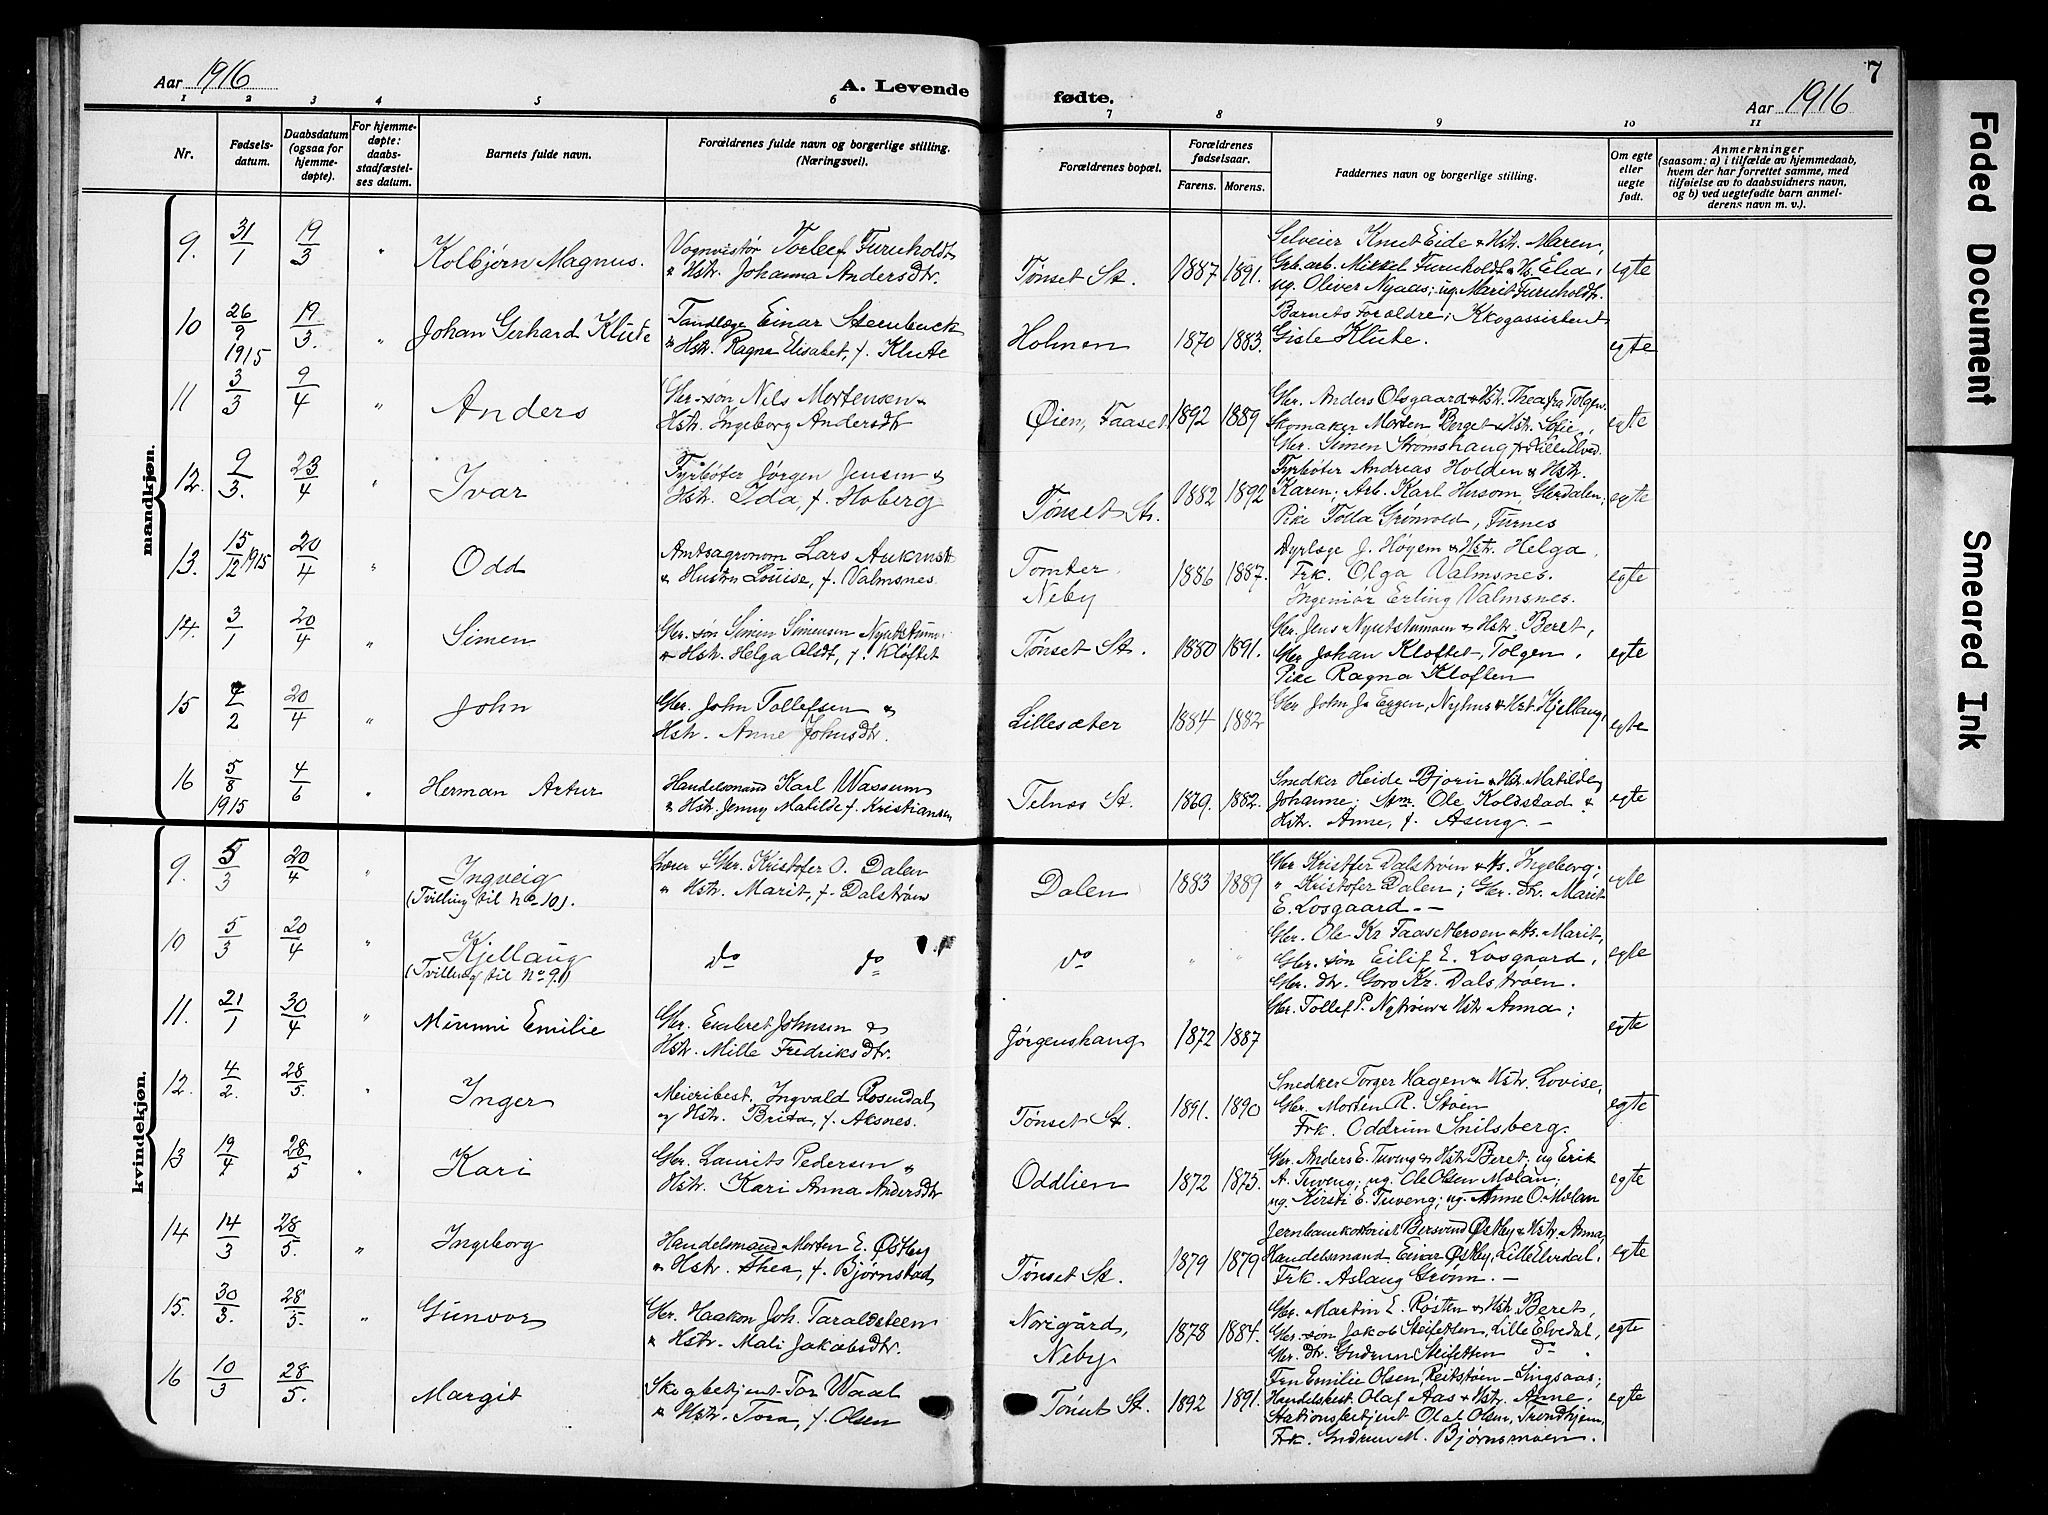 Aar 1916
A. Levende fødte.
7
Aar 1916
1 2 3 4 5 6 7 8 9 10 11
Nr.
Fødsels-
datum.
Daabsdatum
(ogsaa for
hjemme-
døpte).
For hjemme-
døpte:
daabs-
stadfæstel-
ses datum.
Barnets fulde navn.
Forældrenes fulde navn og borgerlige stilling.
(Næringsvei).
Forældrenes bopæl.
Forældrenes
fødselsaar.
Farens. Morens.
Faddernes navn og borgerlige stilling.
Om egte
eller
uegte
født.
Anmerkninger
(saasom: a) i tilfælde av hjemmedaab,
hvem der har forrettet samme, med
tilføielse av to daabsvidners navn,
og b) ved uegtefødte barn anmel-
derens navn m. v.).
mandkjøn.
9. 31/1 19/3 " Kolbjørn Magnus.
Vognvistør Torleif Furuholdt
& Hstr. Johanna Andersdtr.
Tønset St. 1887 1891.
Selveier Knut Eide & Hstr. Maren,
Grb.arb. Mikkel Furuholdt & Hs. Elia,
ug. Oliver Nyaas; ug. Marit Furuholdt.
egte
10 26/9 1915 19/3. " Johan Gerhard Klüte
Tandlæge Einar Steenbuck
& Hstr. Ragna Elisabet, f. Klüte
Holmen 1870 1883.
Barnets Forældre; Skogassistent
Gisle Klüte.
egte
11 3/3 9/4 " Anders
Gbr.søn Nils Mortensen &
Hstr. Ingeborg Andersdtr
Øien, Faaset. 1892 1889
Gbr. Anders Olsgaard & Hstr. Thea fra Tolgen.
Skomaker Morten Berget & Hstr. Sofie,
Gbr. Simen Strømshaug fr. Lille Elved.
egte
12. 9/3. 23/4 " Ivar
Fyrbøter Jørgen Jensen &
Hstr. Ida, f. Hoberg
Tønset St. 1882 1892
Fyrbøter Andreas Holden & Hstr.
Karen; Arb. Karl Husom, Glerdalen,
Pike Tolla Grønvold, Furnes
egte
13. 15/12 1915 20/4 " Odd
Amtsagronom Lars Aukrust
& Hustru Louise, f. Valmsnes.
Tomter
Neby
1886 1887.
Dyrlæge J. Høyem & Hstr. Helga.
Frk. Olga Valmsnes.
Ingeniør Erling Valmsnes.
egte
14. 3/1 20/4 " Simen
Gbr.søn Simen Simensen Nyutstumo.
& Hstr. Helga Olsdt, f. Kløftet
Tønset St. 1880 1891.
Gbr. Jens Nyutstumoen & Hstr. Beret,
Gbr Johan Kloftet, Tolgen.
Pike Ragna Kloften
egte
15 4/2 20/4 " John
Gbr. John Tollefsen &
Hstr. Anne Johnsdtr.
Lillesæter 1884 1882
Gbr John Js Eggen, Nyhus & Hst. Kjellaug,
egte
16 5/8 1915 4/6 " Herman Artur
Handelsmand Karl Wassum
& Hstr. Jenny Matilde f. Kristiansen
Telnes St. 1869. 1882.
Snedker Heide Bjorii & Hstr. Matilde
Johanne; Stm. Ole Koldstad &
Hstr. Anne, f. Aseng. —
egte
kvindekjøn.
9. 5/3 20/4 " Ingveig
(Tvilling til No 10).
Lærer & Gbr. Kristofer O. Dalen
& Hstr. Marit, f. Dalstrøin
Dalen 1883 1889
Gbr Kristfer Dalstrøin & Hs. Ingeborg;
" Kristofer Dalen; Gbr. dtr. Marit
E. Losgaard. —
egte
10 5/3 20/4 " Kjellaug
(Tvilling til No 9.)
do do do " "
Gbr. Ole Kr Faasethersen & Hs. Marit,
Gbr. søn Eilif E. Losgaard,
Gbr. dtr. Goro Kr. Dalstrøen.
egte
11. 21/1 30/4 " Mimmi Emilie
Gbr. Embret Johnsen &
Hstr. Mille Fredriksdtr.
Jørgenshaug 1872 1887
Gbr. Tollef P. Nytrøen & Hstr Anna;
egte
12. 4/2. 28/5. " Inger
Meieribest. Ingvald Rosendal
og Hstr. Brita, f. Aksnes.
Tønset St. 1891. 1890
Snedker Torger Hagen & Hstr. Lovise,
Gbr. Morten R. Støen
Frk. Oddrun Snilsberg.
egte
13 19/4 28/5 " Kari
Gbr. Laurits Pedersen &
Hstr. Kari Anna Andersdtr
Oddlien 1872 1875.
Gbr. Anders E. Tuveng & Hstr Beret; ug Erik
A. Tuveng; ug. Ole Olsen Mølan;
ug. Kirsti E. Tuveng; ug. Anne O. Mølan
egte
14 14/3 28/5. " Ingeborg
Handelsmand Morten E. Østby
& Hstr. Thea, f. Bjørnstad
Tønset St. 1879 1879
Jernbanekontorist Bersvend Østby & Hstr Anna,
Handelsmand Einar Østby, Lille Elvedal.
Frk. Aslaug Grønn. —
egte
15. 30/3. 28/5. " Gunvor
Gbr. Haakon Joh. Taraldsteen
& Hstr. Mali Jakobsdtr.
Norigård,
Neby
1878 1884.
Gbr. Martin E. Røsten & Hstr Beret,
Gbr.søn Jakob Steifetsen, Lille Elvedal,
Gbr. dtr. Gudrun Steifetsen do
egte
16 10/3 28/5. Margit
Skogbetjent Tor Waal
& Hstr. Tora, f. Olsen
Tønset St. 1892 1891.
Fru Emilie Olsen, Reitstøen - Singsaas;
Handelsbest. Olaf Aas & Hstr. Anne.
Stationsbetjent Olaf Olsen, Trondhjem,
Frk. Gudrun M. Bjørnsmoen.
egte
Faded Document
Smeared Ink